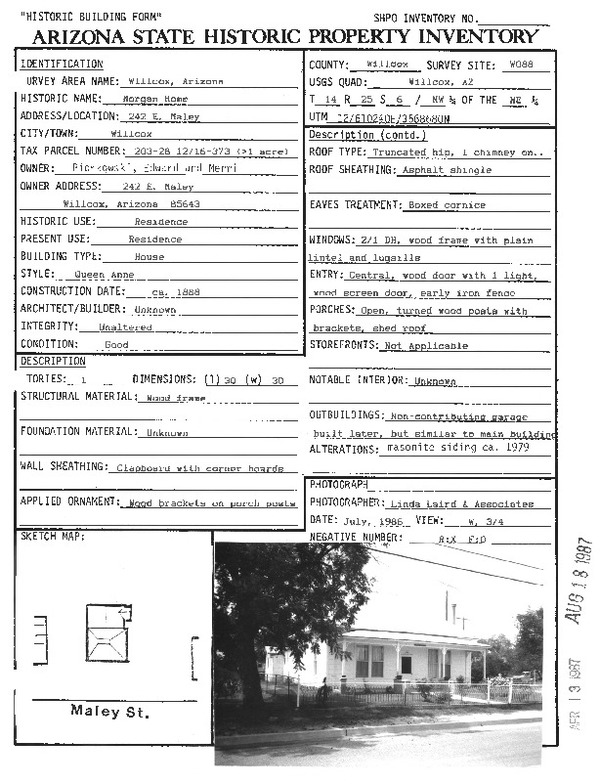 "HISTORIC BUILDING FORM" SHPO INVENTORY NO.
ARIZONA STATE HISTORIC PROPERTY INVENTORY
IDENTIFICATION
URVEY AREA NAME: Willcox, Arizona
HISTORIC NAME: Morgan Home
ADDRESS/LOCATION: 242 E. Maley
CITY/TOWN: Willcox
TAX PARCEL NUMBER: 203-28 12/16-373 (>1 acre)
OWNER: Piorkowski, Edward and Merri
OWNER ADDRESS: 242 E. Maley
Willcox, Arizona 85643
HISTORIC USE: Residence
PRESENT USE: Residence
BUILDING TYPE: House
STYLE: Queen Anne
CONSTRUCTION DATE: ca. 1888
ARCHITECT/BUILDER: Unknown
INTEGRITY: Unaltered
CONDITION: Good
DESCRIPTION
TORIES: 1 DIMENSIONS: (l) 30 (w) 30
STRUCTURAL MATERIAL: Wood frame
FOUNDATION MATERIAL: Unknown
WALL SHEATHING: Clapboard with corner boards
APPLIED ORNAMENT: Wood brackets on porch posts
COUNTY: Willcox SURVEY SITE: W088
USGS QUAD: Willcox, AZ
T 14 R 25 S 6 / NW ¼ OF THE NE ¼
UTM
Description (contd.)
ROOF TYPE: Truncated hip, 1 chimney on..
ROOF SHEATHING: Asphalt shingle
EAVES TREATMENT: Boxed cornice
WINDOWS: 2/1 DH, wood frame with plain
lintel and lugsills
ENTRY: Central, wood door with 1 light,
wood screen door, early iron fence
PORCHES: Open, turned wood posts with
brackets, shed roof
STOREFRONTS: Not Applicable
NOTABLE INTERIOR: Unknown
OUTBUILDINGS: Non-contributing garage
built later, but similar to main building
ALTERATIONS: masonite siding ca. 1979
PHOTOGRAPH
PHOTOGRAPHER: Linda Laird & Associates
DATE: July, 1986 VIEW: W, 3/4
NEGATIVE NUMBER: R:X F:0
SKETCH MAP:
Maley St.
AUG 18 1987
APR 13 1987